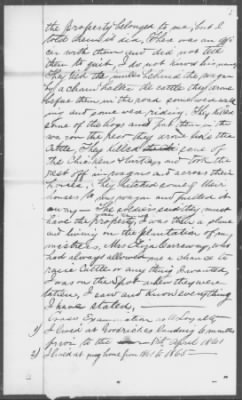 the property belonged to me, but I
told them it did, There was an offi
cer with them and did not tell
them to quit, I do not know his name
they tied the mules behind the wagon
by a chain halter the cattle they drove
before them in the road some were walk
ing and some was riding; They killed
some of the hogs and put them in the
wagon the rest they drove like the
Cattle. They killed some of
the Chickens & turkeys and took the
rest off in wagons and across their
horses, They hitched some of their
horses to my wagon and pulled it
away The soldiers said they must
have the property, I was then a slave
and living on the plantation of my
mistress, Mrs Eliza Carraway, who
had always allowed me a chance to
raise Cattle or any thing I wanted,
I was on the Spot when they were
taken, I saw and know everything
I have stated,
Cross Examination as to Loyalty
1) I lived at Goodriches landing
prior to the 1st April 1861
2) I lived at my home from 1861 to 1865